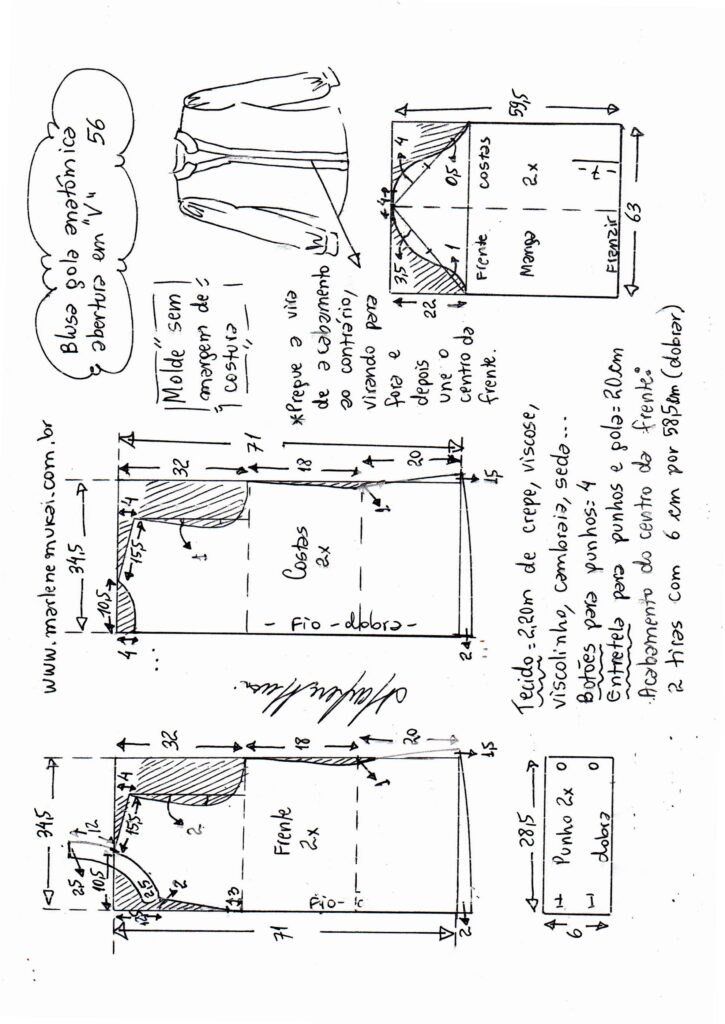 Blusa gola anatômica
abertura em "V" 56
www.marlenemukai.com.br
"Molde sem
margem de
costura"
*Pregue a vira
de acabamento
ao contrário,
virando para
fora e
depois
une o
centro da
frente.
34,5
12
2,5
10,5
4
15,5
2,5
2
2
12,5
3
32
18
20
1
1,5
71
2
Frente
2x
Fio
34,5
10,5
4
4
15,5
1
32
18
20
71
1
1,5
2
Costas
2x
- Fio - dobra -
4
3,5
4
1
0,5
22
59,5
63
Frente
costas
Manga
2x
7
Franzir
28,5
6
Punho 2x
dobra
Tecido = 2,20m de crepe, viscose,
viscolinho, cambraia, seda...
Botões para punhos = 4
Entretela para punhos e gola = 20cm
Acabamento do centro da frente:
2 tiras com 6 cm por 58,5cm (dobrar)